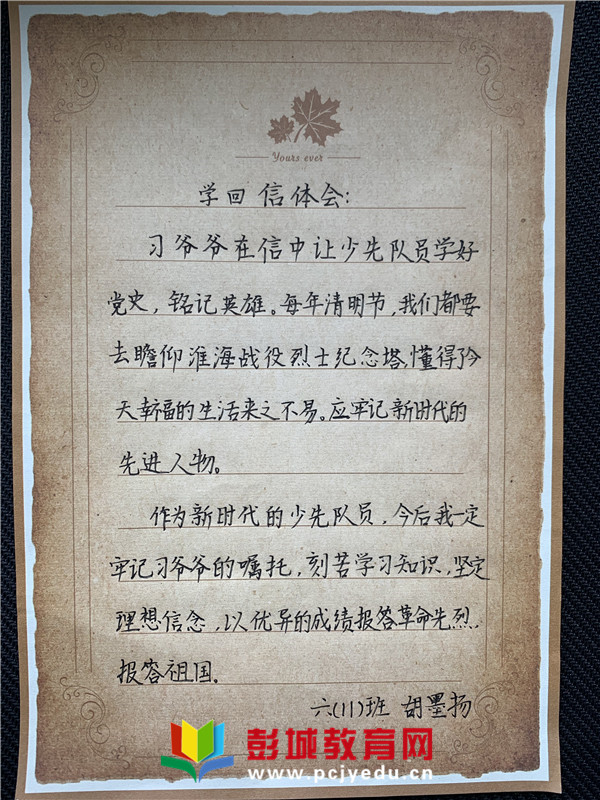 Yours ever
学回信体会:
习爷爷在信中让少先队员学好
党史，铭记英雄。每年清明节，我们都要
去瞻仰淮海战役烈士纪念塔，懂得了今
天幸福的生活来之不易。应牢记新时代的
先进人物。
作为新时代的少先队员，今后我一定
牢记习爷爷的嘱托，刻苦学习知识，坚定
理想信念，以优异的成绩报答革命先烈，
报答祖国。
六(11)班 胡墨扬
彭城教育网
www.pcjyedu.cn